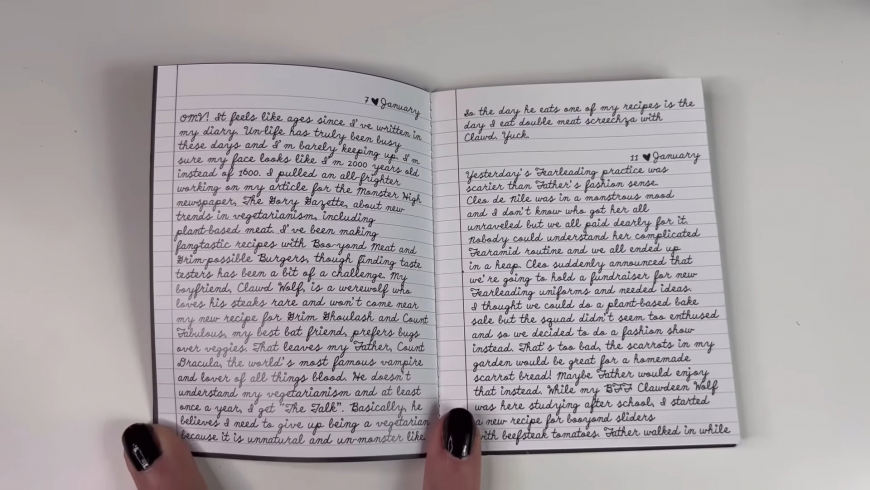 7 ♥ January
OMY! It feels like ages since I've written in
my diary. Un-life has truly been busy
these days and I'm barely keeping up. I'm
sure my face looks like I'm 2000 years old
instead of 1600. I pulled an all-frighter
working on my article for the Monster High
newspaper, The Gory Gazette, about new
trends in vegetarianism, including
plant-based meat. I've been making
fangtastic recipes with Boo-yond Meat and
Grim-possible Burgers, though finding taste
testers has been a bit of a challenge. My
boyfriend, Clawd Wolf, is a werewolf who
loves his steaks rare and won't come near
my new recipe for Grim Ghoulash and Count
Fabulous, my best bat friend, prefers bugs
over veggies. That leaves my Father, Count
Dracula, the world's most famous vampire
and lover of all things blood. He doesn't
understand my vegetarianism and at least
once a year, I get "The Talk". Basically, he
believes I need to give up being a vegetarian
because it is unnatural and un-monster like.
So the day he eats one of my recipes is the
day I eat double meat screechza with
Clawd. Yuck.
11 ♥ January
Yesterday's Fearleading practice was
scarier than Father's fashion sense.
Cleo de Nile was in a monstrous mood
and I don't know who got her all
unraveled but we all paid dearly for it.
Nobody could understand her complicated
Fearamid routine and we all ended up
in a heap. Cleo suddenly announced that
we're going to hold a fundraiser for new
Fearleading uniforms and needed ideas.
I thought we could do a plant-based bake
sale but the squad didn't seem too enthused
and so we decided to do a fashion show
instead. That's too bad, the scarrots in my
garden would be great for a homemade
scarrot bread! Maybe Father would enjoy
that instead. While my BFF Clawdeen Wolf
was here studying after school, I started
a new recipe for booyond sliders
with beefsteak tomatoes. Father walked in while